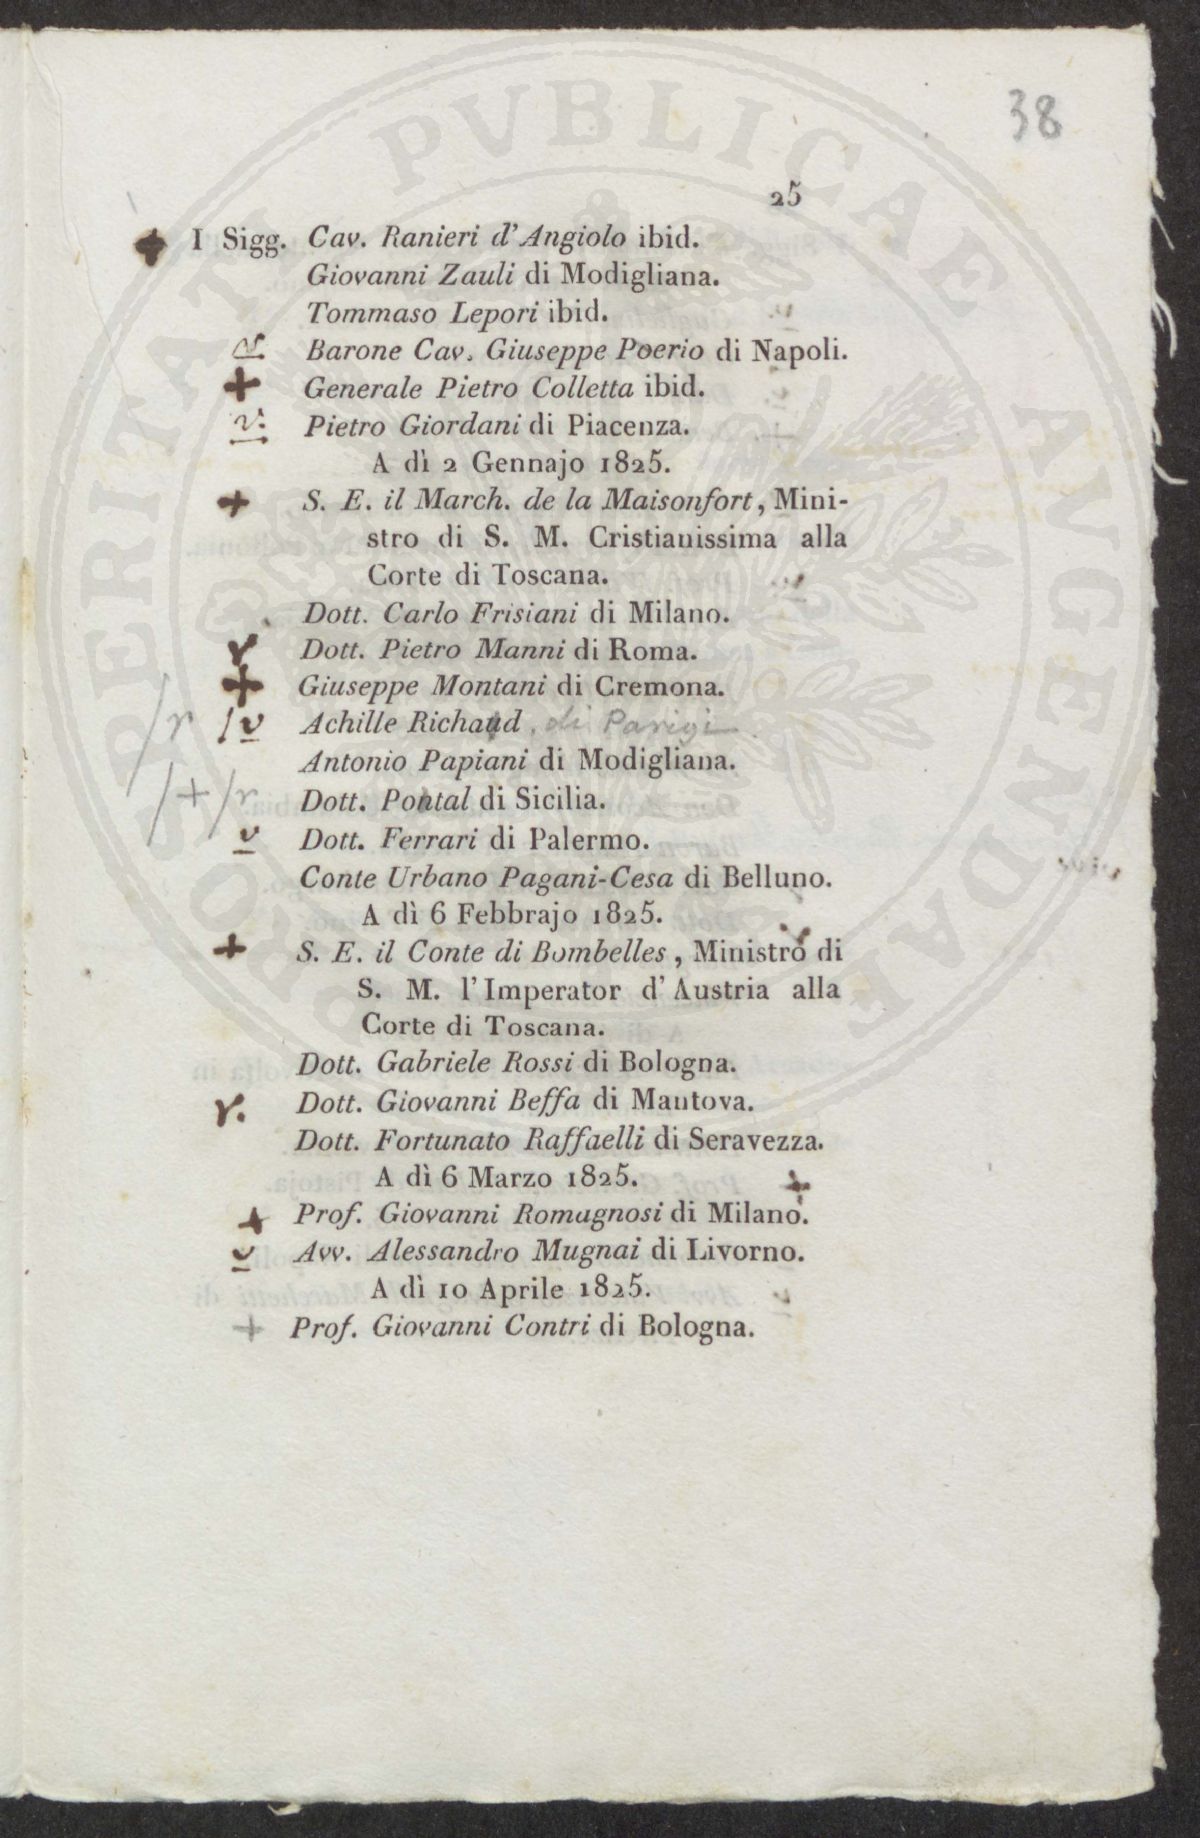 38
25
+ I Sigg. Cav. Ranieri d'Angiolo ibid.
Giovanni Zauli di Modigliana.
Tommaso Lepori ibid.
Barone Cav. Giuseppe Poerio di Napoli.
+ Generale Pietro Colletta ibid.
v. Pietro Giordani di Piacenza.
A dì 2 Gennajo 1825.
+ S. E. il March. de la Maisonfort, Mini-
stro di S. M. Cristianissima alla
Corte di Toscana.
Dott. Carlo Frisiani di Milano.
v Dott. Pietro Manni di Roma.
+ Giuseppe Montani di Cremona.
/r /v Achille Richaud, di Parigi
Antonio Papiani di Modigliana.
/+/r Dott. Pontal di Sicilia.
v Dott. Ferrari di Palermo.
Conte Urbano Pagani-Cesa di Belluno.
A dì 6 Febbrajo 1825.
+ S. E. il Conte di Bombelles, Ministro di
S. M. l'Imperator d'Austria alla
Corte di Toscana.
Dott. Gabriele Rossi di Bologna.
v. Dott. Giovanni Beffa di Mantova.
Dott. Fortunato Raffaelli di Seravezza.
A dì 6 Marzo 1825.
+ Prof. Giovanni Romagnosi di Milano.
v Avv. Alessandro Mugnai di Livorno.
A dì 10 Aprile 1825.
+ Prof. Giovanni Contri di Bologna.
PROSPERITATI PVBLICAE AVGENDAE